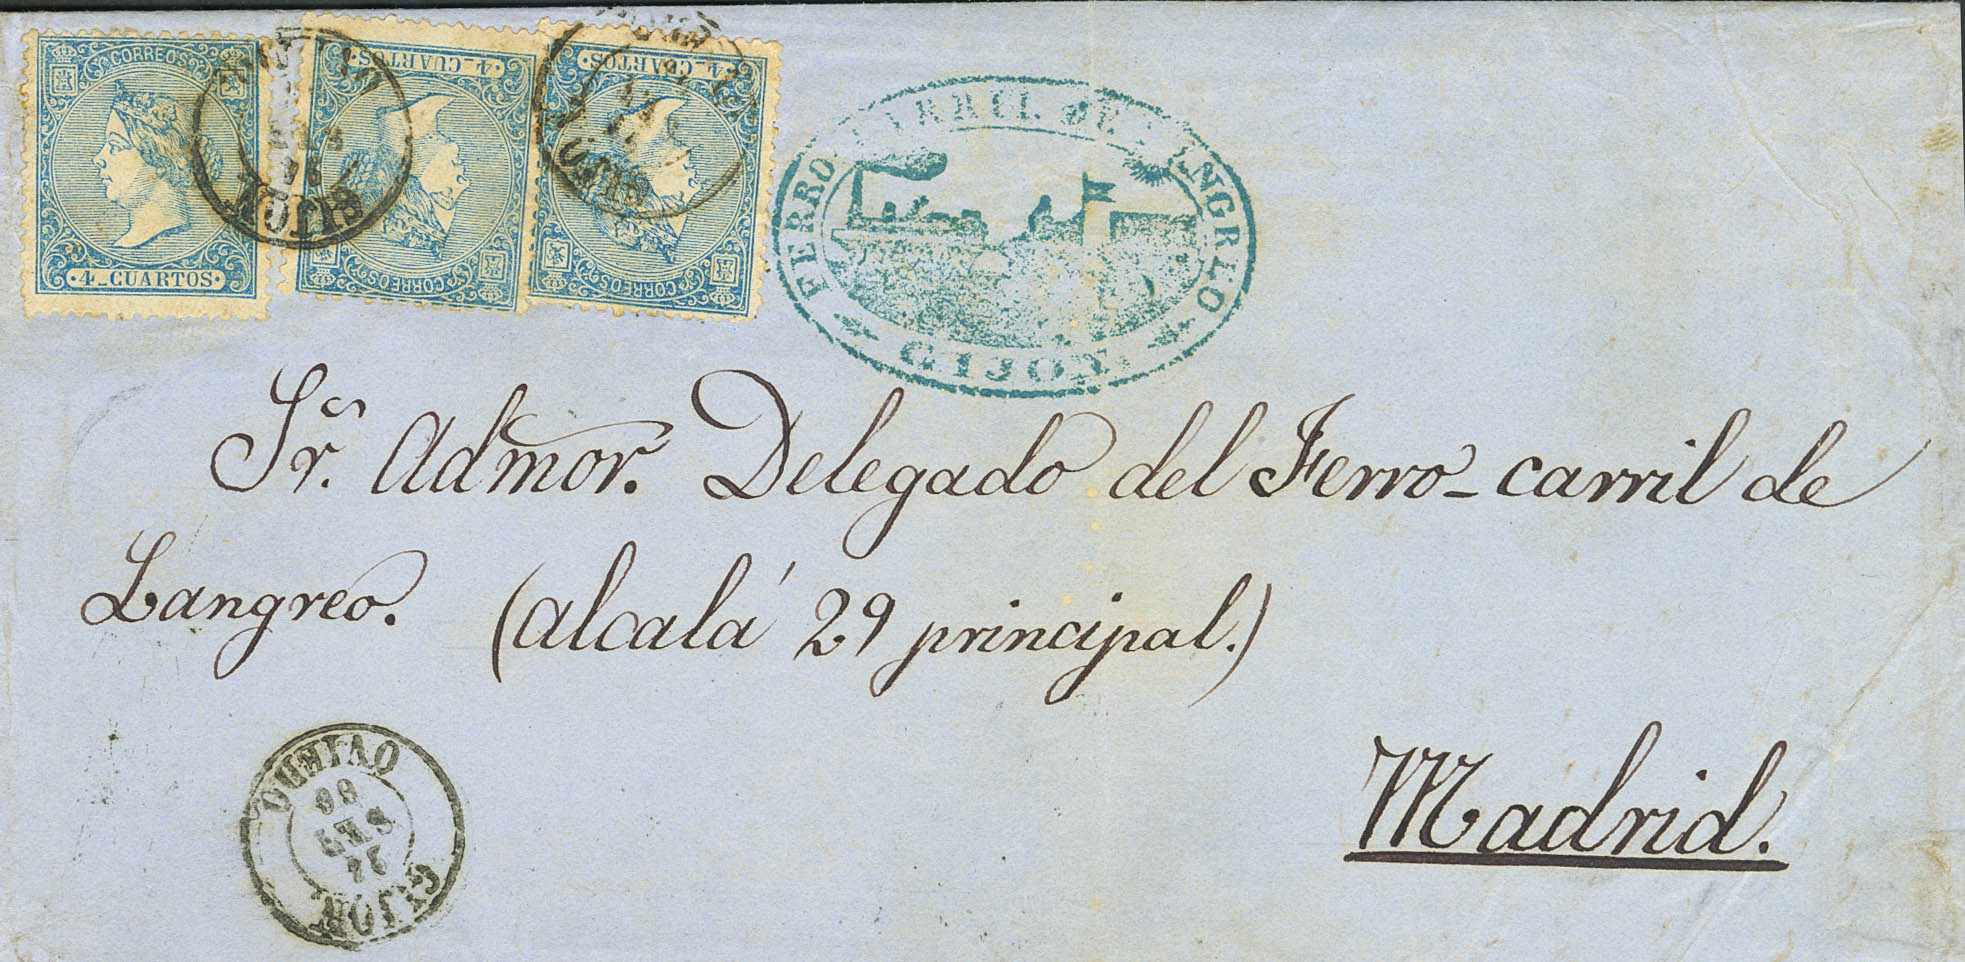 CORREOS
4_CUARTOS
4_CUARTOS
CORREOS
4_CUARTOS
CORREOS
GIJON
GIJON
FERRO CARRIL DE LANGREO
GIJON
Sr. Admor. Delegado del Ferro-carril de
Langreo. (Alcalá 29 principal.)
Madrid.
OVIEDO
SET
66
GIJON